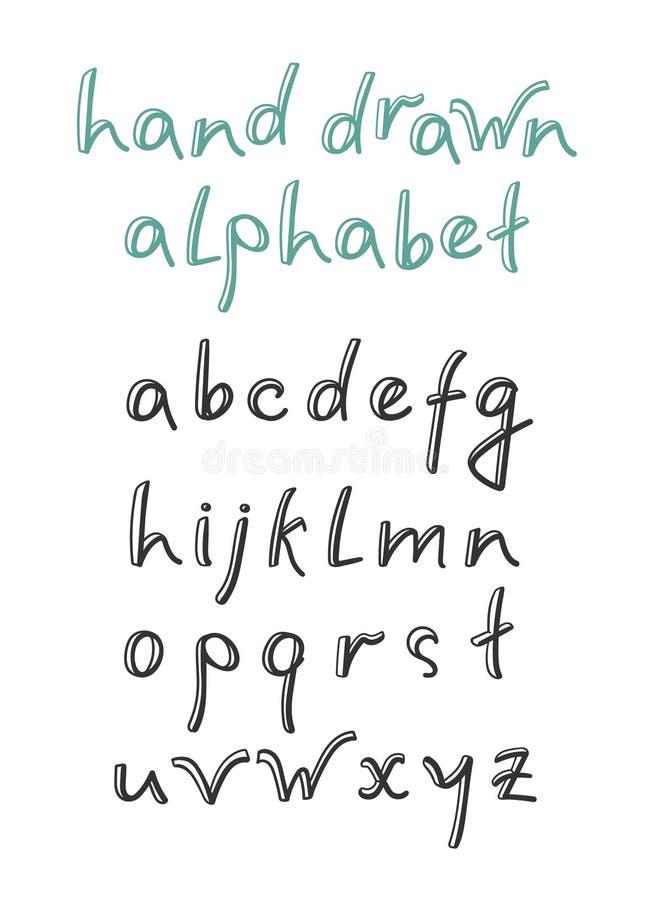 hand drawn
alphabet
abcdefg
dreamstime
hijklmn
opqrst
uvwxyz